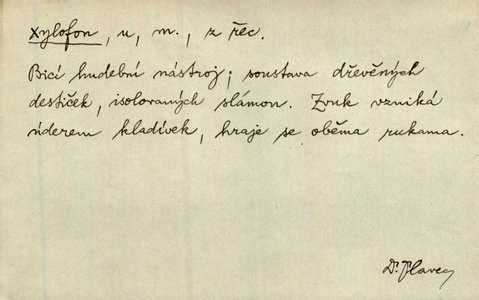 Xylofon, u, m., z řec.
Bicí hudební nástroj; soustava dřevěných
destiček, isolovaných slámon. Zvuk vzniká
úderem kladívek, hraje se oběma rukama.
Dr. Plavec